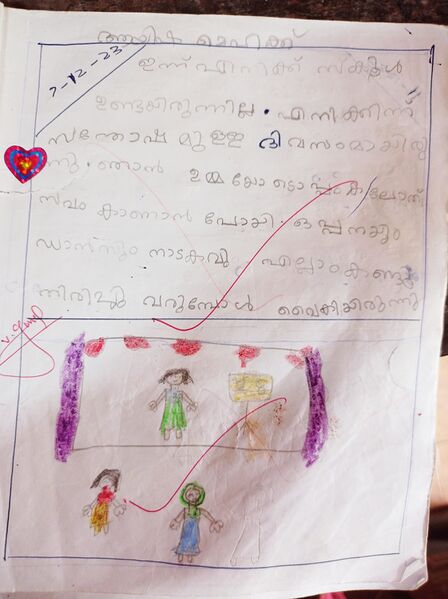 ആയിഷ മെഹക്ക്
7-12-23
ഇന്ന് എനിക്ക് സ്കൂൾ
ഉണ്ടായിരുന്നില്ല. എനിക്കിന്ന്
സന്തോഷമുള്ള ദിവസംമായിരു
ന്നു. ഞാൻ ഉമ്മയോടൊപ്പം കലോത്
സവം കാണാൻ പോയി. ഒപ്പനയും
ഡാൻസും നാടകവും എല്ലാം കണ്ടു
തിരിച്ചു വരുമ്പോൾ വൈകിയിരുന്നു
v. Good